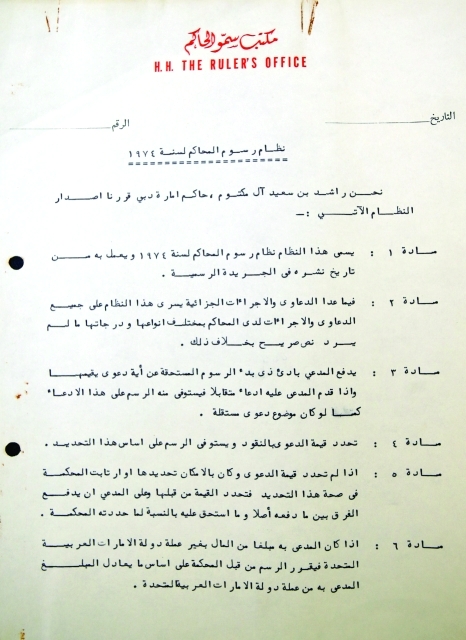 مكتب سمو الحاكم
H. H. THE RULER'S OFFICE
التاريخ ــــــــــــــــ الرقم ــــــــــــــــ
نظام رسوم المحاكم لسنة ١٩٧٤
نحن راشد بن سعيد آل مكتوم، حاكم امارة دبي قررنا اصدار
النظام الآتي :ـ
مادة ١ : يسمى هذا النظام نظام رسوم المحاكم لسنة ١٩٧٤ ويعمل به من
تاريخ نشره في الجريدة الرسمية .
مادة ٢ : فيما عدا الدعاوى والاجراءات الجزائية يسرى هذا النظام على جميع
الدعاوى والاجراءات لدى المحاكم بمختلف انواعها ودرجاتها ما لم
يرد نص صريح بخلاف ذلك .
مادة ٣ : يدفع المدعي بادئ ذى بدء الرسوم المستحقة عن أية دعوى يقيمها
واذا قدم المدعى عليه ادعاء متقابلا فيستوفى منه الرسم على هذا الادعاء
كما لو كان موضوع دعوى مستقلة .
مادة ٤ : تحدد قيمة الدعوى بالنقود ويستوفى الرسم على اساس هذا التحديد .
مادة ٥ : اذا لم تحدد قيمة الدعوى وكان بالامكان تحديدها او ارتابت المحكمة
في صحة هذا التحديد فتحدد القيمة من قبلها وعلى المدعي ان يدفع
الفرق بين ما دفعه أصلا وما استحق عليه بالنسبة لما حددته المحكمة .
مادة ٦ : اذا كان المدعى به مبلغا من المال بغير عملة دولة الامارات العربية
المتحدة فيقرر الرسم من قبل المحكمة على اساس ما يعادل المبلغ
المدعى به من عملة دولة الامارات العربية المتحدة .